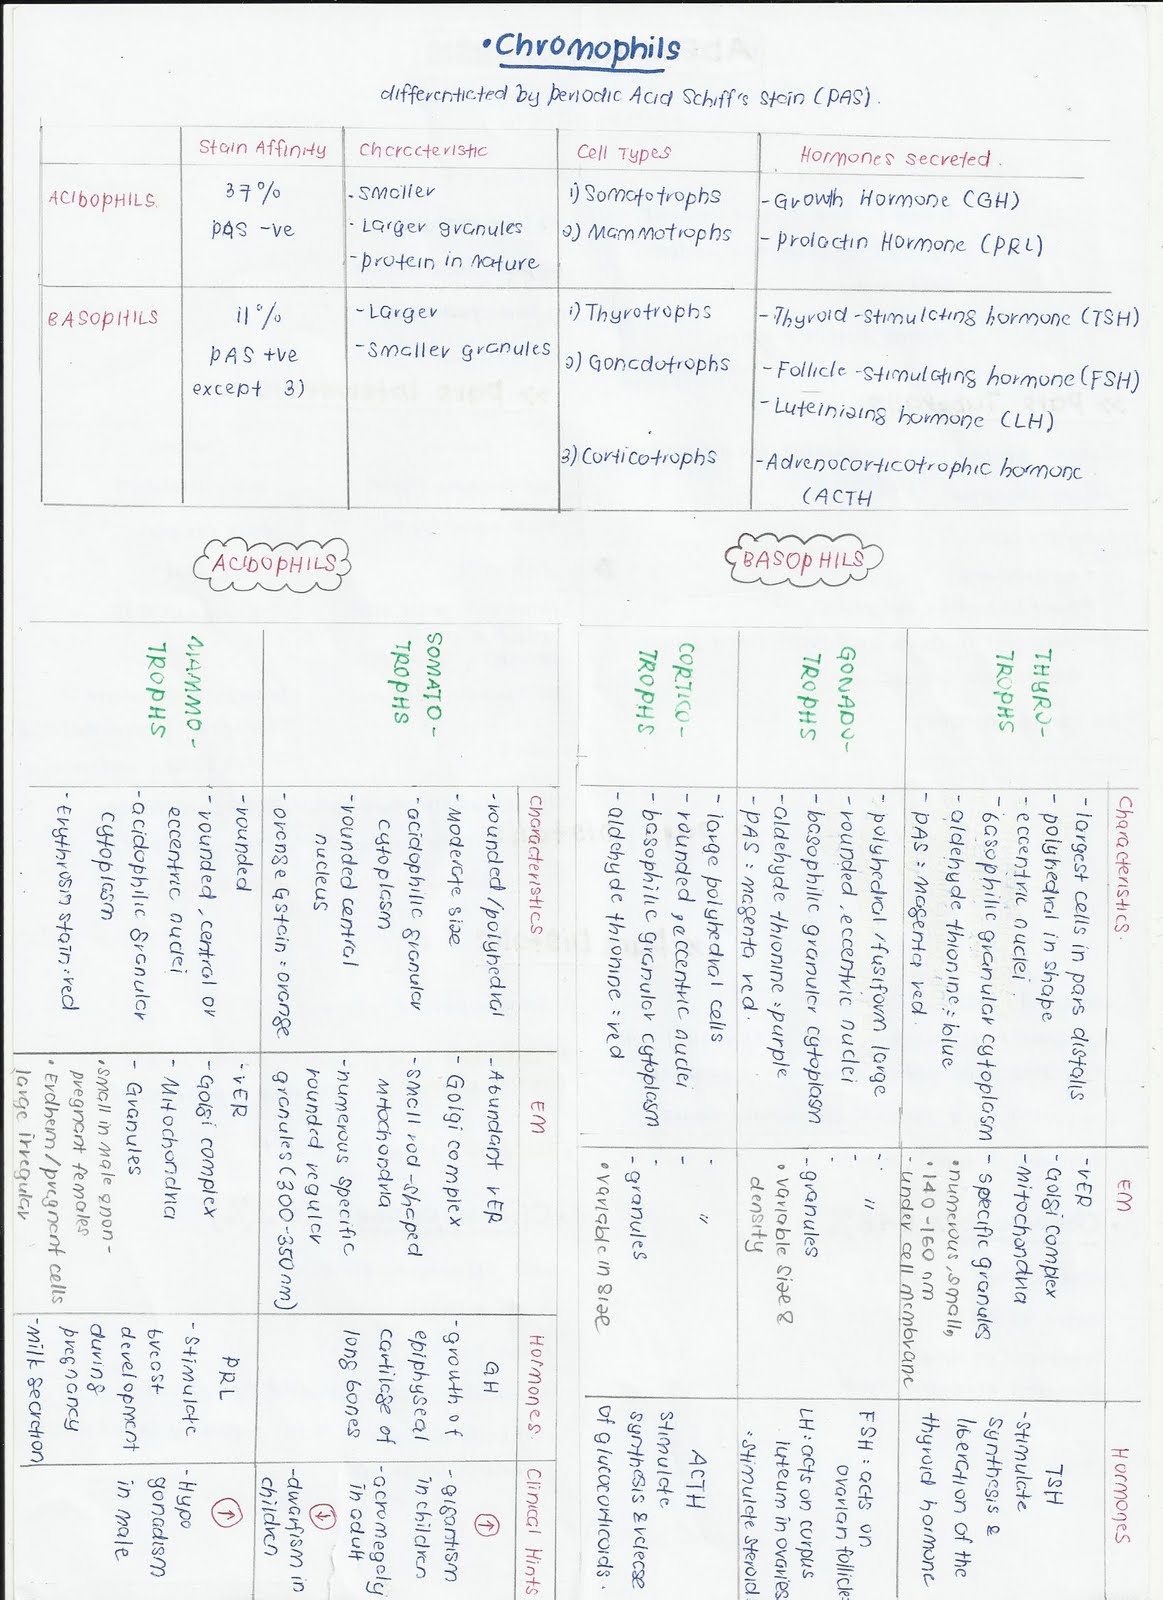 • Chromophils
differenticted by Periodic Acid Schiff's Stain (PAS).
Stain Affinity
Characteristic
Cell Types
Hormones secreted.
ACIDOPHILS.
37%
PAS -ve
- smaller
- Larger granules
- protein in nature
1) Somatotrophs
2) Mammotrophs
- Growth Hormone (GH)
- Prolactin Hormone (PRL)
BASOPHILS
11%
PAS +ve
except 3)
- Larger
- Smaller granules
1) Thyrotrophs
2) Gonadotrophs
3) Corticotrophs
- Thyroid-stimulating hormone (TSH)
- Follicle-stimulating hormone (FSH)
- Luteinizing hormone (LH)
- Adrenocorticotrophic hormone
(ACTH
ACIDOPHILS
BASOPHILS
Characteristics
EM
Hormones.
Clinical Hints
SOMATO-
TROPHS
- rounded/polyhedral
- Moderate size
- acidophilic granular
cytoplasm
- rounded central
nucleus
- orange G stain: orange
- Abundant rER
- Golgi complex
- small rod-shaped
mitochondria
- numerous specific
rounded regular
granules (300-350nm)
GH
- growth of
epiphyseal
cartilage of
long bones
↑
- gigantism
in children
- acromegaly
in adult
↓
- dwarfism in
children
MAMMO-
TROPHS
- rounded
- rounded, central or
eccentric nuclei
- acidophilic granular
cytoplasm
- Erythrosin stain: red
- rER
- Golgi complex
- Mitochondria
- Granules
• small in male & non-
pregnant females
• Erdheim/pregnant cells
large irregular
PRL
- stimulate
breast
development
during
pregnancy
- milk secretion
↑
- Hypo
gonadism
in male
Characteristics.
EM
Hormones
THYRO-
TROPHS
- largest cells in pars distalis
- polyhedral in shape
- eccentric nuclei
- basophilic granular cytoplasm
- aldehyde thionine: blue
- PAS: magenta red.
- rER
- Golgi complex
- mitochondria
- specific granules
• numerous, small,
• 140-160 nm
under cell membrane
TSH
- stimulate
synthesis &
liberation of the
thyroid hormone
GONADO-
TROPHS
- polyhedral/fusiform large
- rounded, eccentric nuclei
- basophilic granular cytoplasm
- aldehyde thionine: purple
- PAS: magenta red.
- "
- granules
• variable size &
density
FSH: acts on
ovarian follicle
LH: acts on corpus
luteum in ovaries
• stimulate steroid
CORTICO-
TROPHS
- large polyhedral cells
- rounded, eccentric nuclei
- basophilic granular cytoplasm
- aldehyde thionine: red
- "
- granules
• variable in size
ACTH
stimulate
synthesis & release
of glucocorticoids.